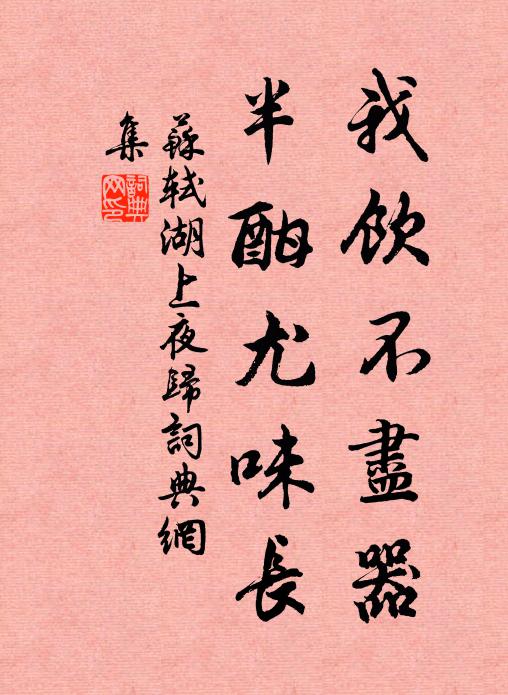 我飲不盡器
半酣尤味長
蘇軾湖上夜歸詞典網
集
詞典網印